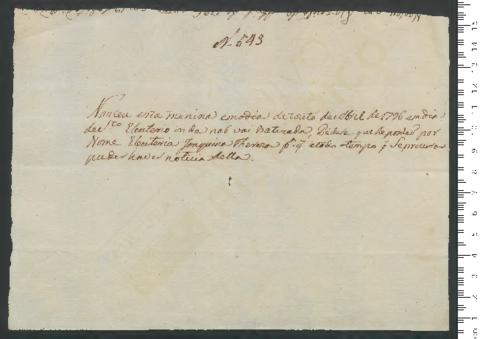 N.º 543
Nasceu esta menina em o dia de oito de Abril de 1796 em dia
de S.to Eleuterio inda não vai Batizada, Pedese que se ponha por
Nome Eleuteria Joaquina Thereza p.ª q a todo o tempo q se procurar
puder haver noticia della.